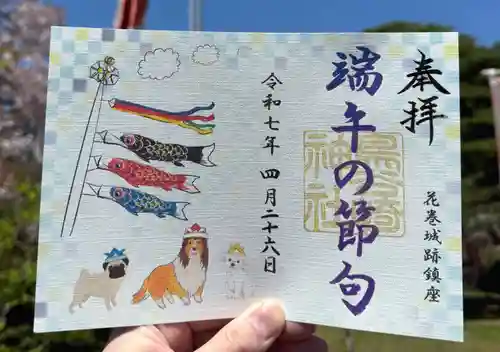 奉拝
花巻城跡鎮座
端午の節句
鳥谷崎神社
令和七年 四月二十六日